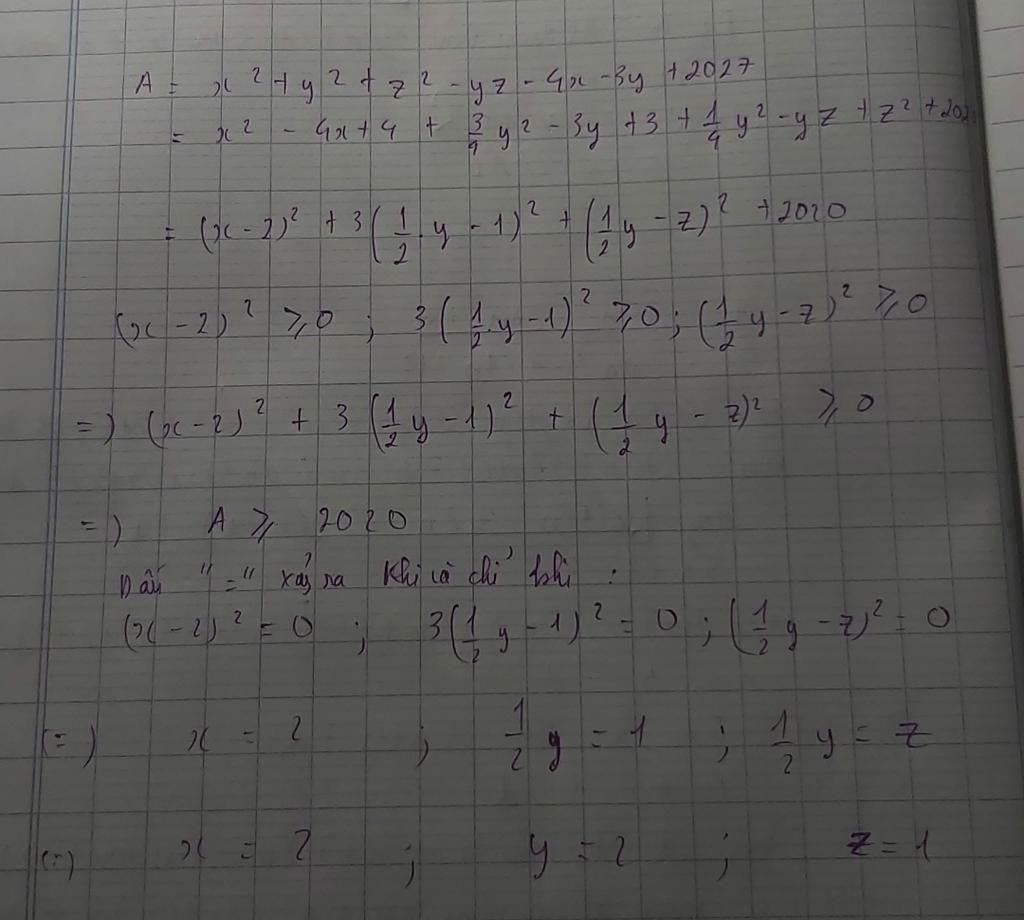 A = x² + y² + z² - yz - 4x - 3y + 2027
= x² - 4x + 4 + 3/4 y² - 3y + 3 + 1/4 y² - yz + z² + 202
= (x - 2)² + 3(1/2 y - 1)² + (1/2 y - z)² + 2020
(x - 2)² ⩾ 0 ; 3(1/2 y - 1)² ⩾ 0 ; (1/2 y - z)² ⩾ 0
=) (x - 2)² + 3(1/2 y - 1)² + (1/2 y - z)² ⩾ 0
=) A ⩾ 2020
Dấu "=" xảy ra khi và chỉ khi :
(x - 2)² = 0 ; 3(1/2 y - 1)² = 0 ; (1/2 y - z)² = 0
(=) x = 2 ; 1/2 y = 1 ; 1/2 y = z
(=) x = 2 ; y = 2 ; z = 1